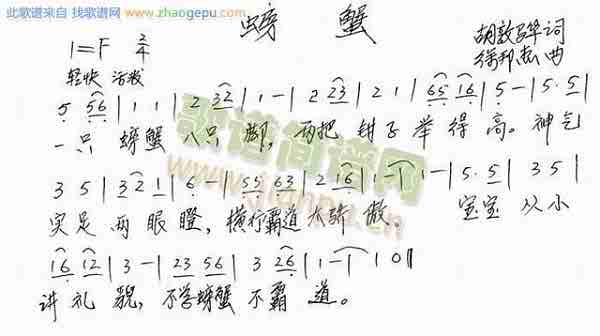 此歌谱来自 找歌谱网 www.zhaogepu.com
螃蟹
1=F 2/4
轻快 活泼
词
曲
5 56 | 1 1 | 2 32 | 1 - | 2 23 | 2 1 | 65 16 | 5 - | 5·5 |
一只 螃蟹 八只 脚，两把 钳子 举得高。神气
3 5 | 32 1 | 6 - | 55 63 | 2 16 | 1 - | 1 - | 5·5 | 3 5 |
实足 两眼瞪，横行霸道大骄傲。 宝宝 从小
16 12 | 3 - | 23 56 | 3 26 | 1 - | 1 0 ‖
讲礼貌，不学螃蟹不霸道。